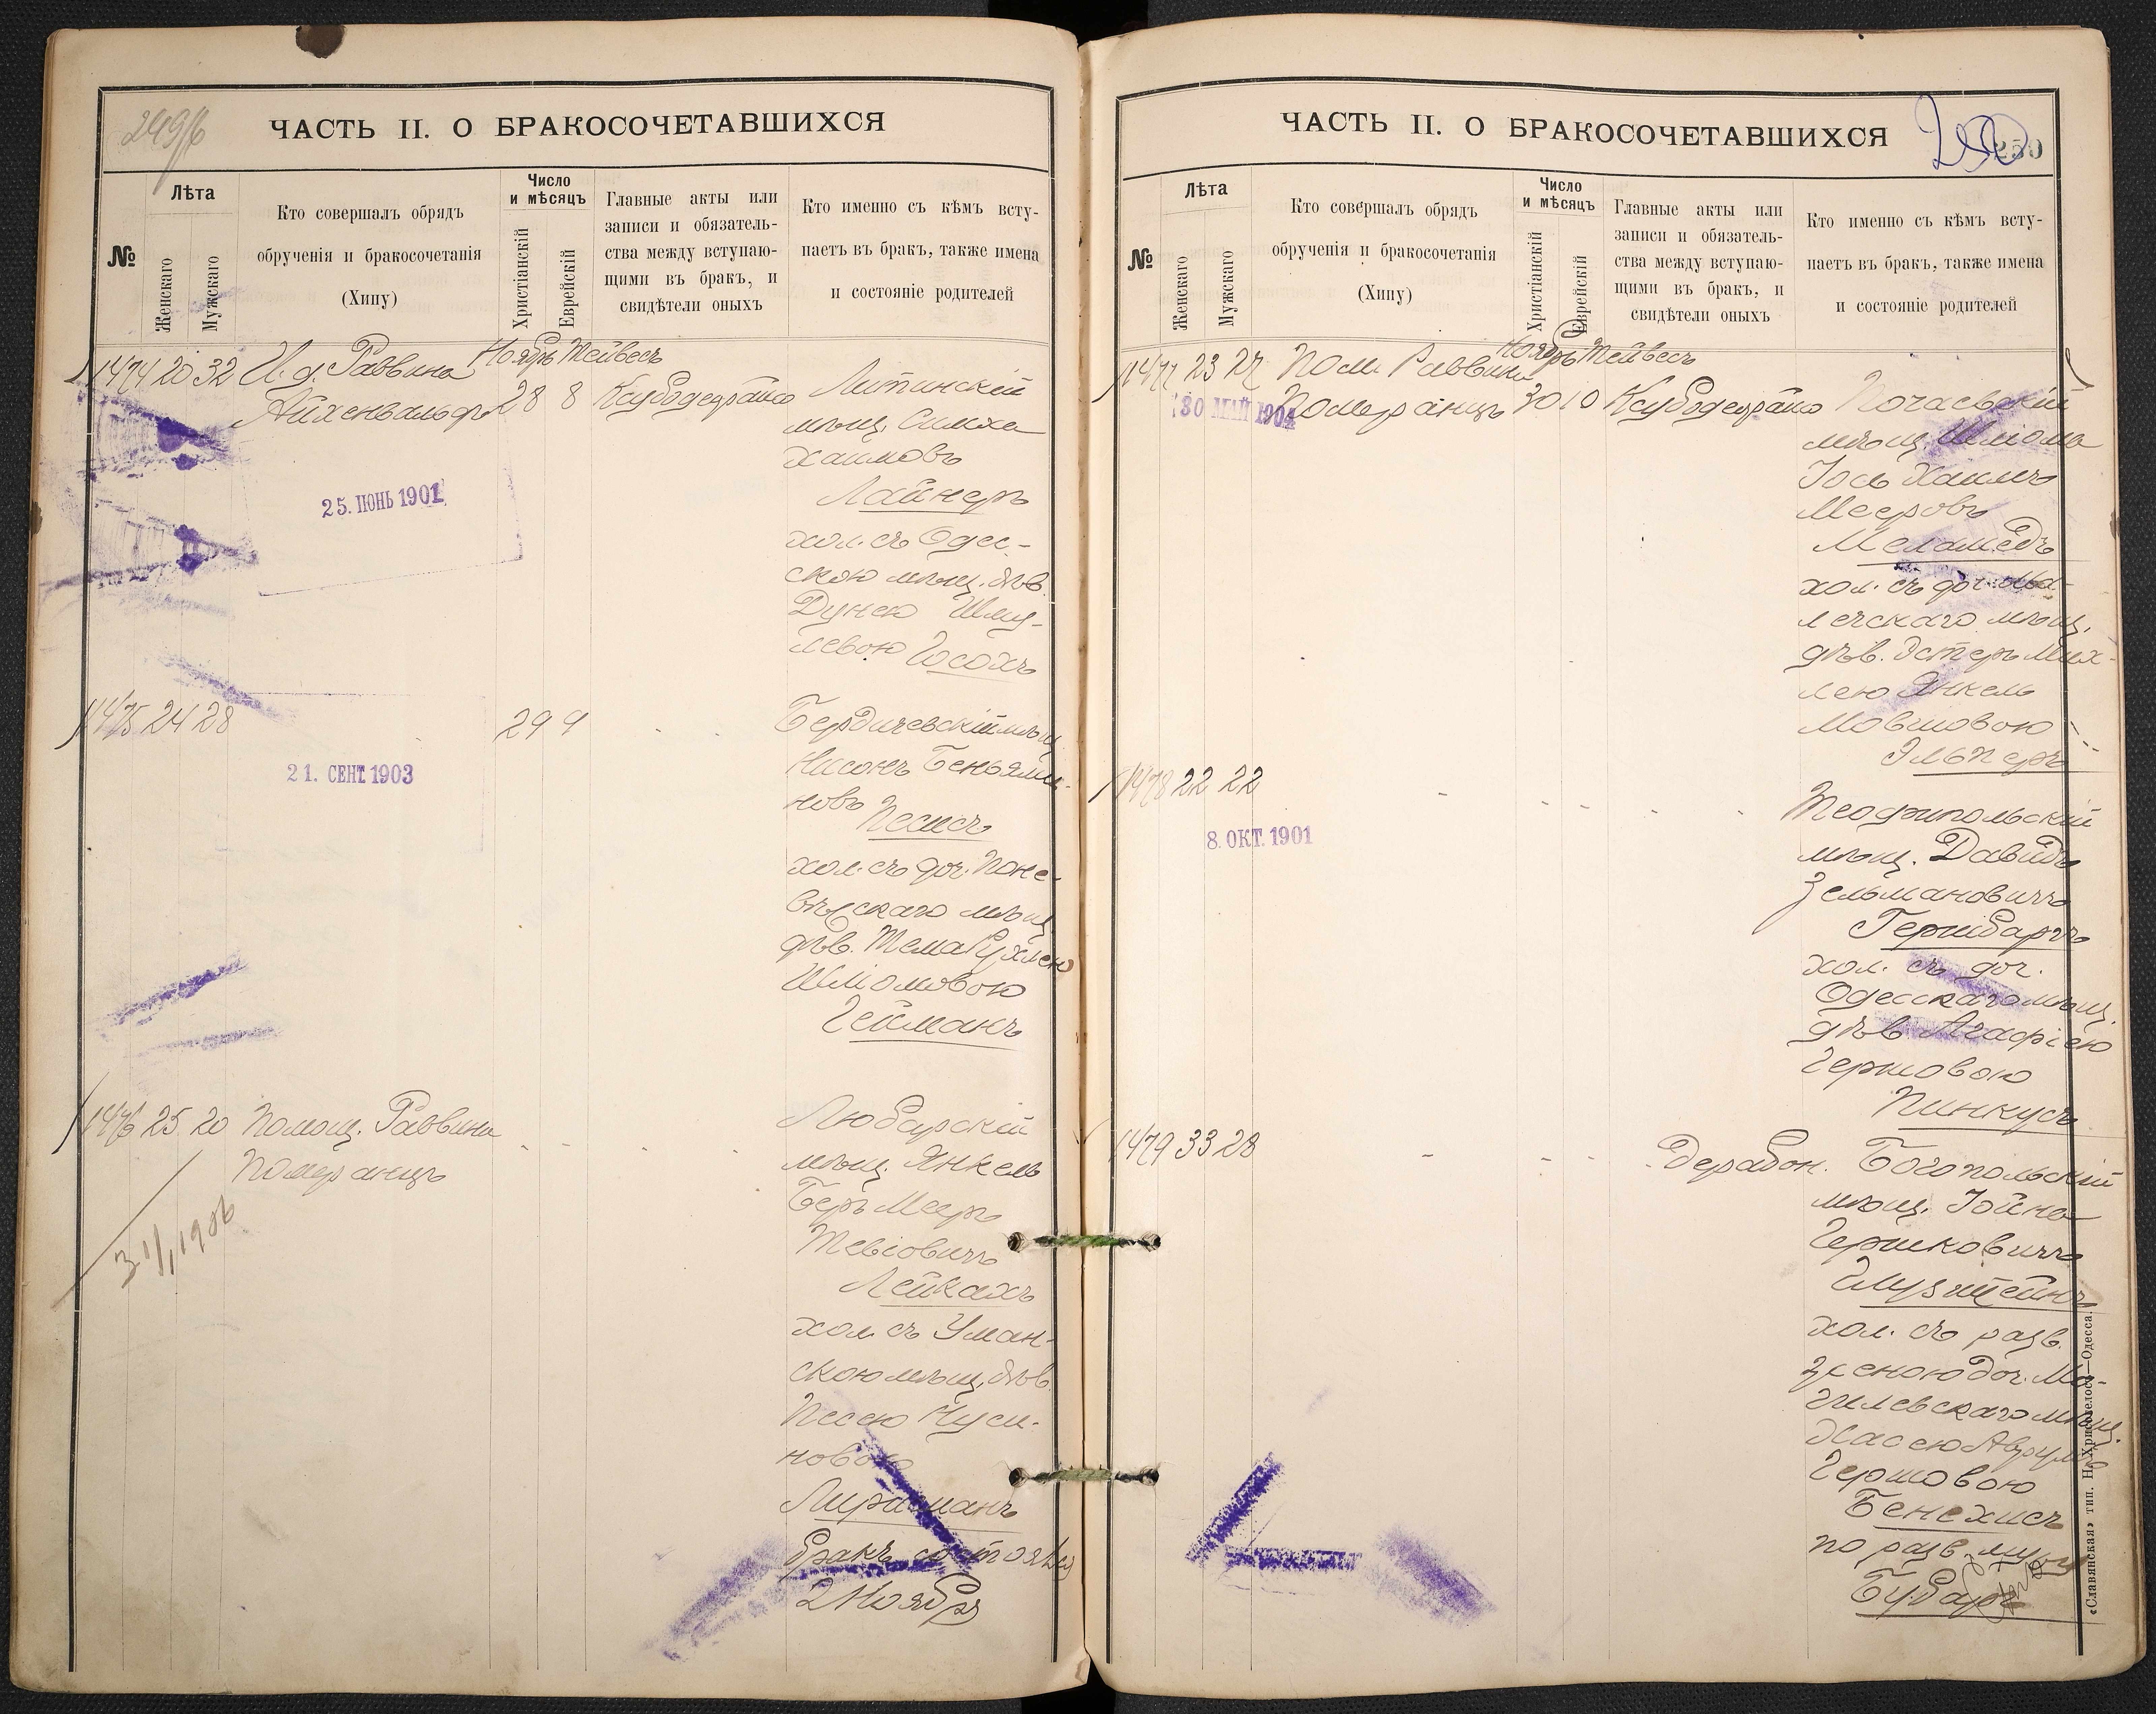 249/б
ЧАСТЬ II. О БРАКОСОЧЕТАВШИХСЯ
№
Лѣта
Женскаго
Мужскаго
Кто совершалъ обрядъ
обрученія и бракосочетанія
(Хипу)
Число
и мѣсяцъ
Христіанскій
Еврейскій
Главные акты или
записи и обязатель-
ства между вступаю-
щими въ бракъ, и
свидѣтели оныхъ
Кто именно съ кѣмъ всту-
паетъ въ бракъ, также имена
и состояніе родителей
Ноябрь Тейвесъ
1474 20 32 И. д. Раввина
Айхенвальдъ 28 8 Ксубодецрайсо
Литинскій
мѣщ. Симха
Хаимовъ
Лайнеръ
хол. съ Одес-
скою мѣщ. дѣв.
Дунею Шму-
левою Госохъ
25. ІЮНЬ 1901
1475 24 28
29 9
Бердичевскій мѣщ
Нисонъ Беньями-
новъ
Песисъ
хол. съ доч. Поне-
вѣжскаго мѣщ
дѣв. Тема Рухлею
Шліомовою
Гейманъ
21. СЕНТ. 1903
1476 25 20 Помощ. Раввина
Померанцъ
3 1/1 1906
Любарскій
мѣщ. Янкель
Беръ Мееръ
Тевіовичъ
Лейкахъ
хол. съ Уман-
скою мѣщ. дѣв.
Песею Нуси-
новою
бракъ состоялся
2 Ноября
ЧАСТЬ II. О БРАКОСОЧЕТАВШИХСЯ
250
250
№
Лѣта
Женскаго
Мужскаго
Кто совершалъ обрядъ
обрученія и бракосочетанія
(Хипу)
Число
и мѣсяцъ
Христіанскій
Еврейскій
Главные акты или
записи и обязатель-
ства между вступаю-
щими въ бракъ, и
свидѣтели оныхъ
Кто именно съ кѣмъ всту-
паетъ въ бракъ, также имена
и состояніе родителей
Ноябрь Тейвесъ
1477 23 27 Пом. Раввина
Померанцъ 30 10 Ксубодецрайсо
30 МАЙ 1904
Почаевскій
мѣщ. Шліома
Іось Хаимъ
Мееровъ
Меламедъ
хол. съ доч.
лечскаго мѣщ.
дѣв. Эстеръ Мих-
лею Янкель
Мовшовою
Эльперъ
1478 22 22
8. ОКТ. 1901
Теофипольскій
мѣщ. Давидъ
Зельмановичъ
Гершбаргъ
хол. съ доч.
Одесскаго мѣщ.
дѣв. Агафіею
Гершовою
Пинкусъ
1479 33 28
Дерабон.
Богопольскій
мѣщ. Іойна
Гершковичъ
Глузштейнъ
хол. съ разв.
женою доч. Мо-
гилевскаго мѣщ.
Хасею Аврумъ
Гершовою
Бенехисъ
по разв. мужу
«Славянская» тип. Н. Хрисогелосъ—Одесса.